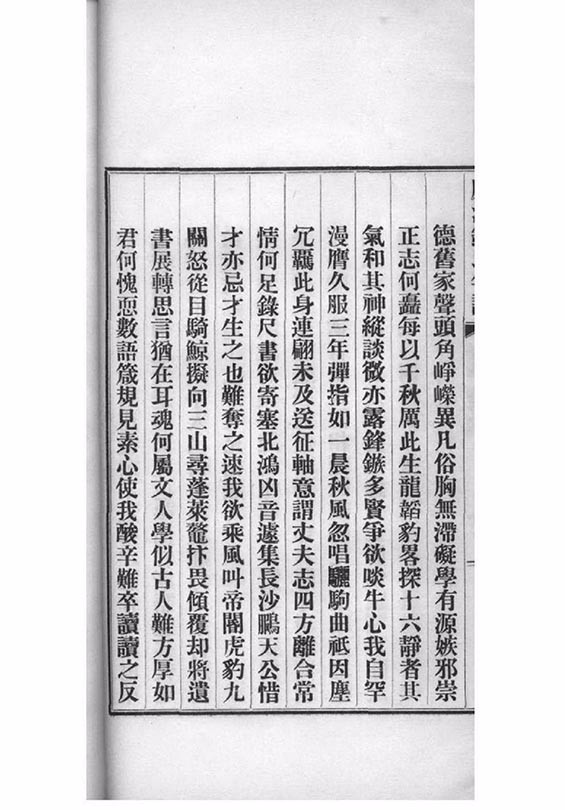 德舊家聲頭角崢嶸異凡俗胸無滯礙學有源嫉邪崇
正志何矗每以千秋厲此生龍韜豹畧探十六靜者其
氣和其神縱談微亦露鋒鏃多賢爭欲啖牛心我自罕
漫膺久服三年彈指如一晨秋風忽唱驪駒曲祗因塵
冗羈此身連翩未及送征軸意謂丈夫志四方離合常
情何足錄尺書欲寄塞北鴻凶音遽集長沙鵩天公惜
才亦忌才生之也難奪之速我欲乘風叫帝閽虎豹九
關怒從目騎鯨擬向三山尋蓬萊鼇抃畏傾覆却將遺
書展轉思言猶在耳魂何屬文人學似古人難方厚如
君何愧恧數語箴規見素心使我酸辛難卒讀讀之反